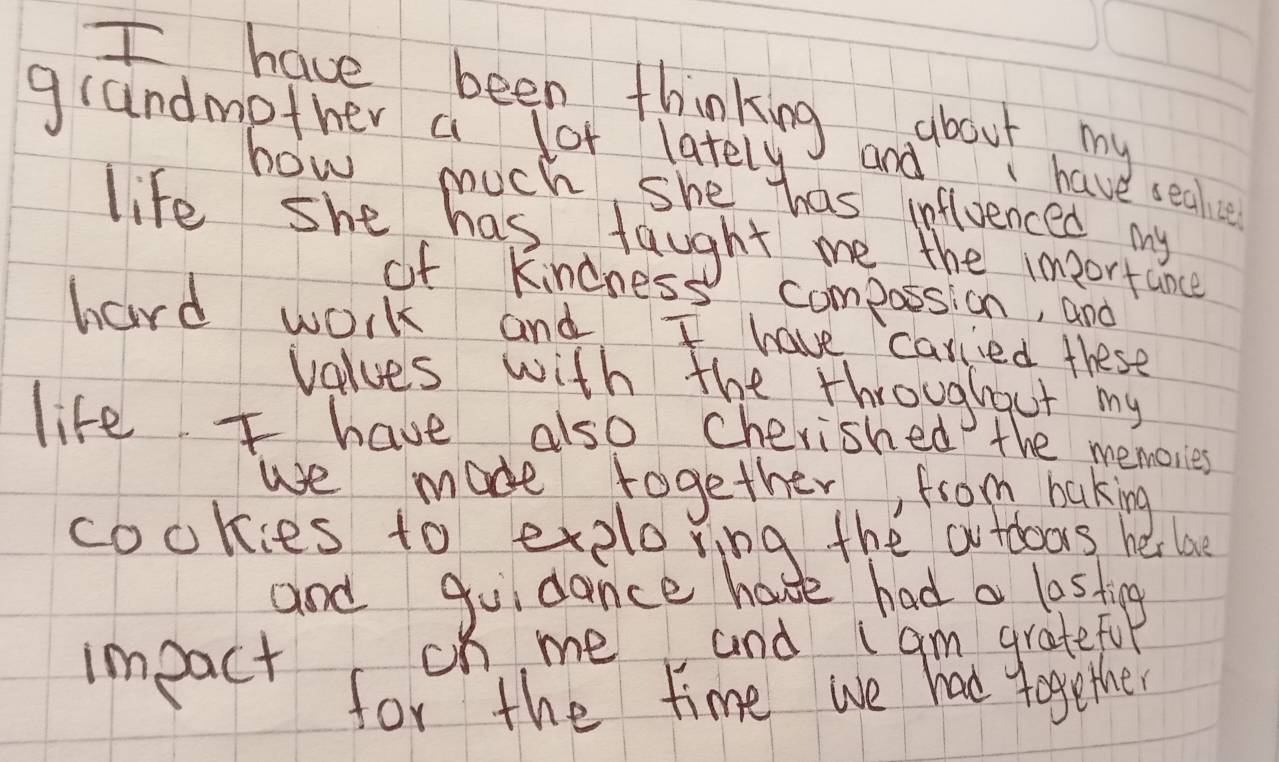 I have been thinking about my
grandmother a lot lately and i have realized
how much she has influenced my
life she has taught me the importance
of kindness compassion, and
hard work and I have carried these
values with the throughout my
life. I have also cherished the memories
we made together, from baking
cookies to exploring the outdoors her love
and guidance have had a lasting
impact on me and i am grateful
for the time we had together